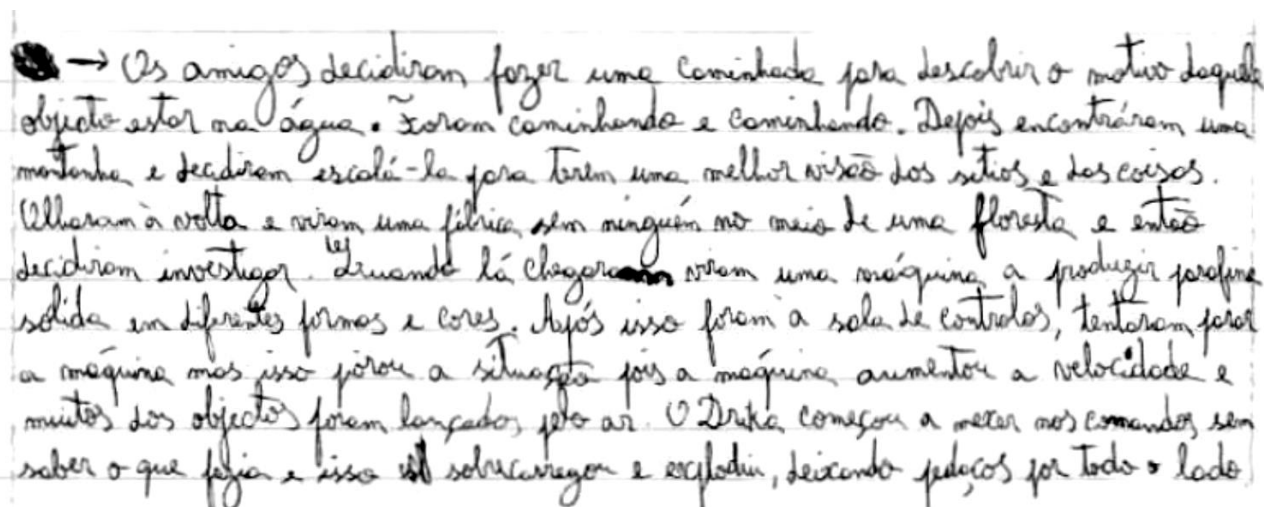 → Os amigos decidiram fazer uma caminhada para descobrir o motivo daquele
objecto estar na água. Foram caminhando e caminhando. Depois encontráram uma
montanha e decidiram escalá-la para terem uma melhor visão dos sitios e das coisas.
Olharam à volta e viram uma fábrica sem ninguém no meio de uma floresta e então
decidiram investigar. Quando lá chegaram viram uma máquina a produzir parafina
solida em diferentes formas e cores. Após isso foram à sala de controlos, tentaram parar
a máquina mas isso piorou a situação pois a máquina aumentou a velocidade e
muitos dos objectos foram lançados pelo ar. O Drika começou a mexer nos comandos sem
saber o que fazia e isso sobrecarregou e explodiu, deixando pedaços por todo o lado